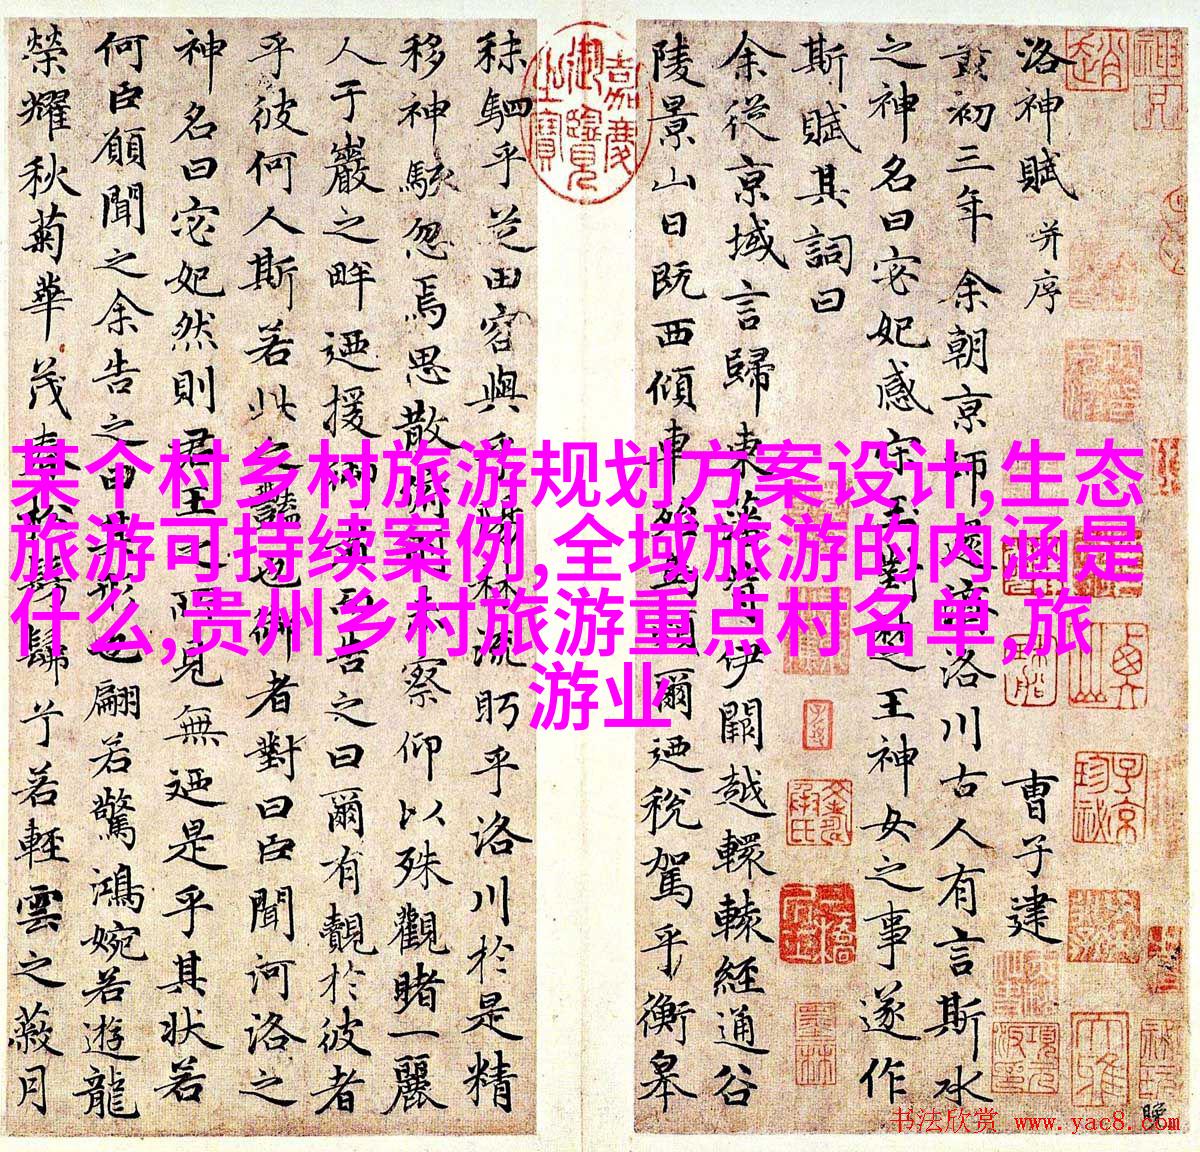 某个村乡村旅游规划方案设计,生态
旅游可持续案例,全域旅游的内涵是
什么,贵州乡村旅游重点村名单,旅
游业
洛神賦 并序 曹子建
黃初三年余朝京師還濟洛川古人有言斯水
之神名曰宓妃感宋玉對楚王神女之事遂作
斯賦其詞曰
余從京域言歸東藩背伊闕越轘轅經通谷
陵景山日既西傾車殆馬煩爾迺稅駕乎衡皋
嘉慶御覽之寶
秣駟乎芝田容與乎陽林流眄乎洛川於是精
移神駭忽焉思散俯則未察仰以殊觀睹一麗
人于巖之畔迺援御者而告之曰爾有覿於彼者
乎彼何人斯若此之豔也御者對曰臣聞河洛之
神名曰宓妃然則君王之所見無迺是乎其狀若
何臣願聞之余告之曰其形也翩若驚鴻婉若遊龍
榮耀秋菊華茂春松髣髴兮若輕雲之蔽月
书法欣赏 www.yac8.com